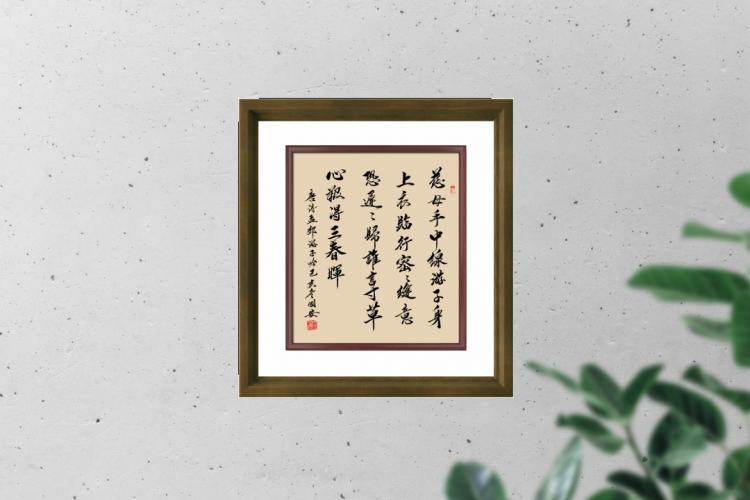 慈母手中線游子身
上衣臨行密〻縫意
恐遲〻歸誰言寸草
心報得三春暉
唐詩孟郊游子吟己亥冬國安